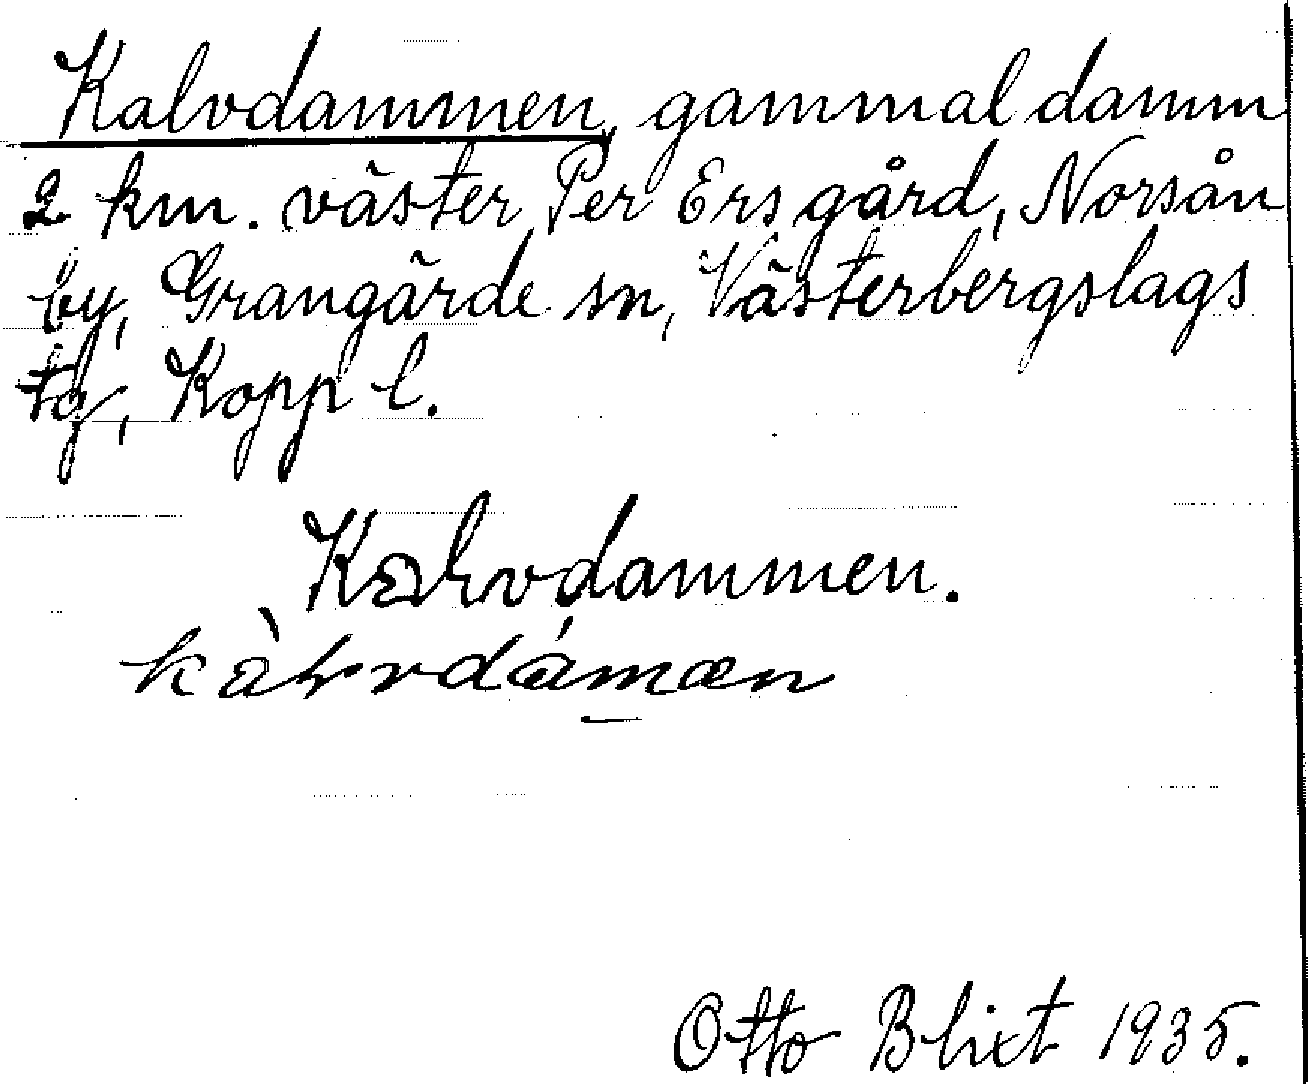 Kalvdammen, gammal damm
2 km. väster Per Ers gård, Norsån
by, Grangärde sn, Västerbergslags
tg, Kopp l.
Kalvdammen.
kàlvdámæn
Otto Blixt 1935.